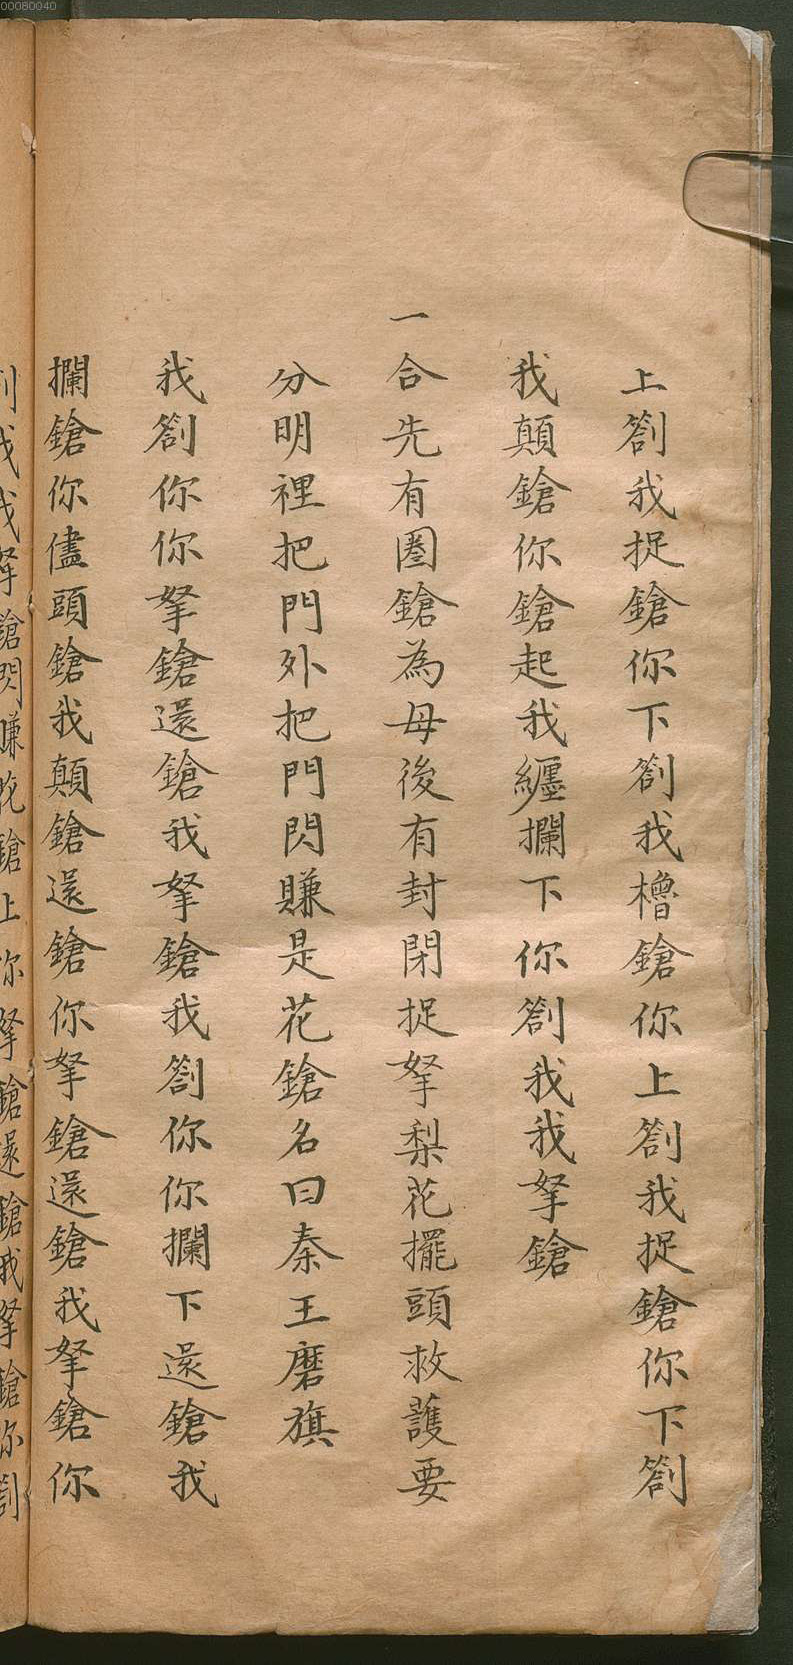 00080040
上劄我捉鎗你下劄我櫓鎗你上劄我捉鎗你下劄
我顛鎗你鎗起我纏攔下你劄我我拏鎗
一合先有圏鎗為母後有封閉捉拏梨花擺頭救護要
分明裡把門外把門閃賺是花鎗名曰秦王磨旗
我劄你你拏鎗還鎗我拏鎗我劄你你攔下還鎗我
攔鎗你儘頭鎗我顛鎗還鎗你拏鎗還鎗我拏鎗你
劄我我拏鎗閃賺花鎗上你拏鎗還鎗我拏鎗你劄